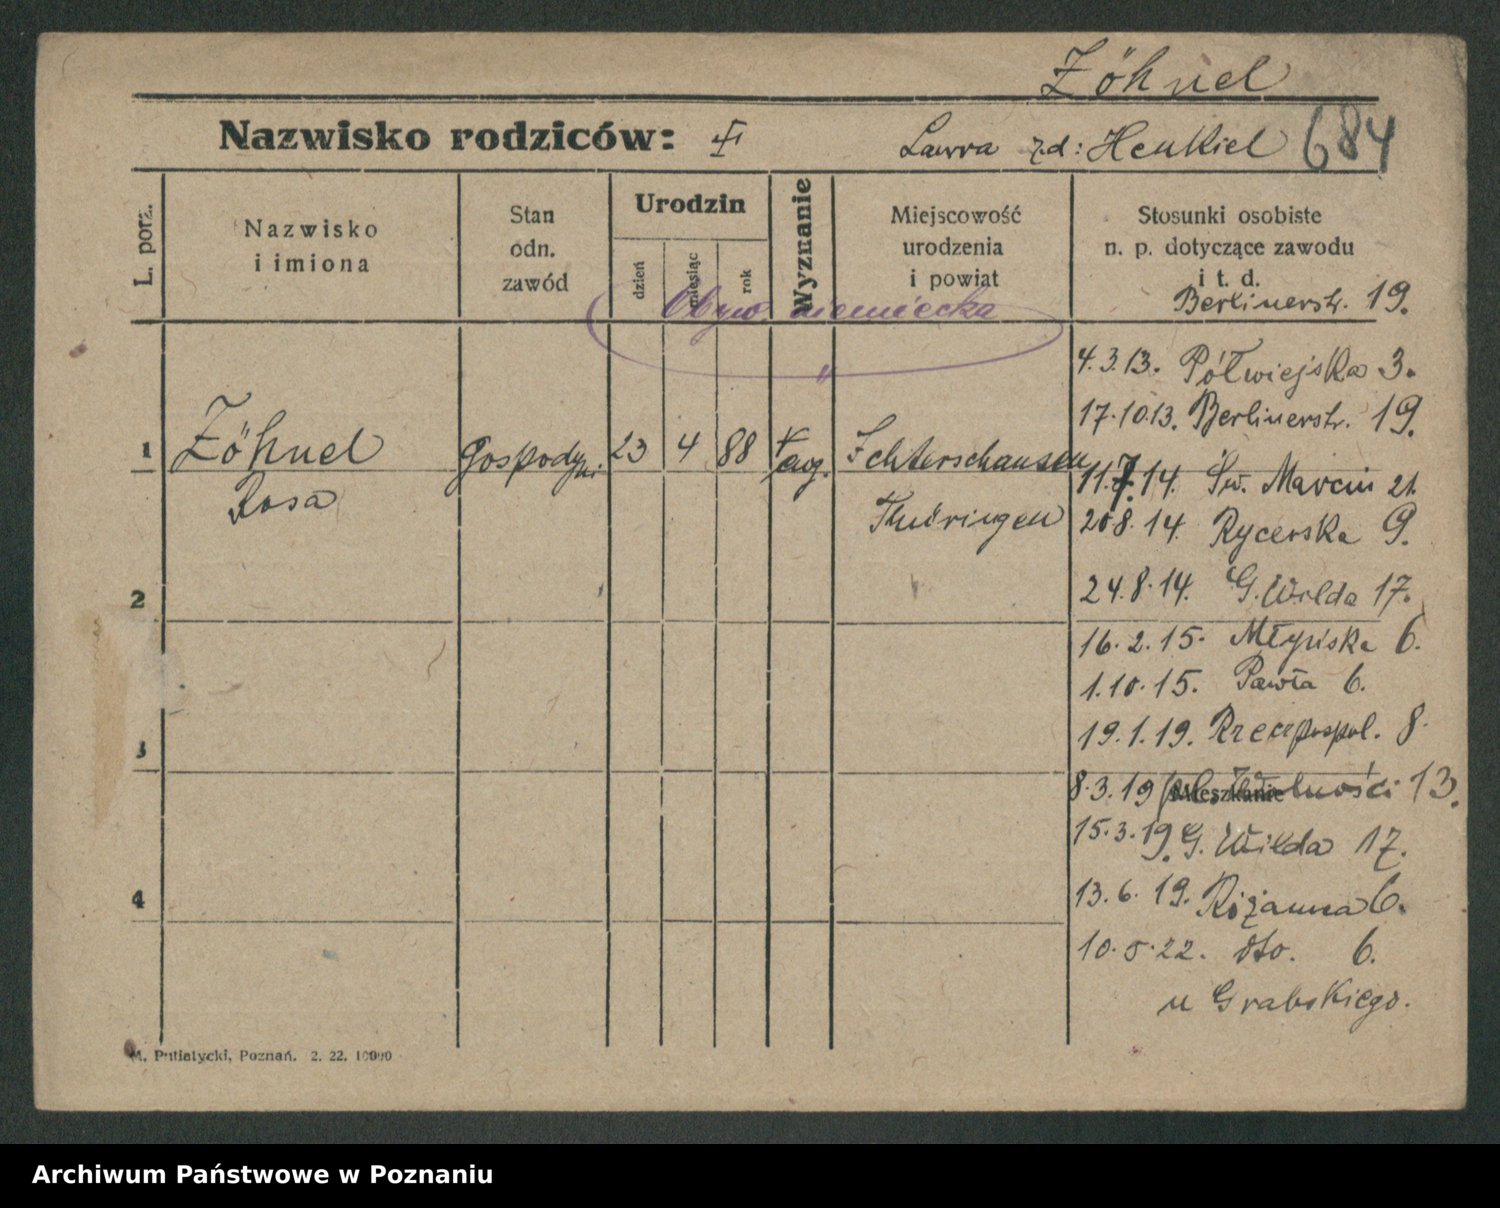 Zöhnel
Nazwisko rodziców: Laura zd: Henkiel 684
L. porz.
Nazwisko
i imiona
Stan
odn.
zawód
Urodzin
dzień
miesiąc
rok
Wyznanie
Miejscowość
urodzenia
i powiat
Stosunki osobiste
n. p. dotyczące zawodu
i t. d.
Berlinerstr. 19.
Obyw. niemiecka
4.3.13. Półwiejska 3.
17.10.13. Berlinerstr. 19.
1 Zöhnel Gospodyni 23 4 88 Ichterschausen
Rosa
Thüringen
11.7.14. Św. Marcin 21.
20 8. 14. Rycerska 9.
24.8.14. G. Wilda 17.
2
16.2.15. Młyńska 6.
1.10.15. Pawła 6.
19.1.19. Rzeczpospol. 8.
3
8.3.19 pl. Wolności 13.
Mieszkanie
15.3.19. G. Wilda 17.
4
13.6.19. Różanna 6.
10.5.22. dto. 6.
u Grabskiego.
M. Putiatycki, Poznań. 2. 22. 10000
Archiwum Państwowe w Poznaniu